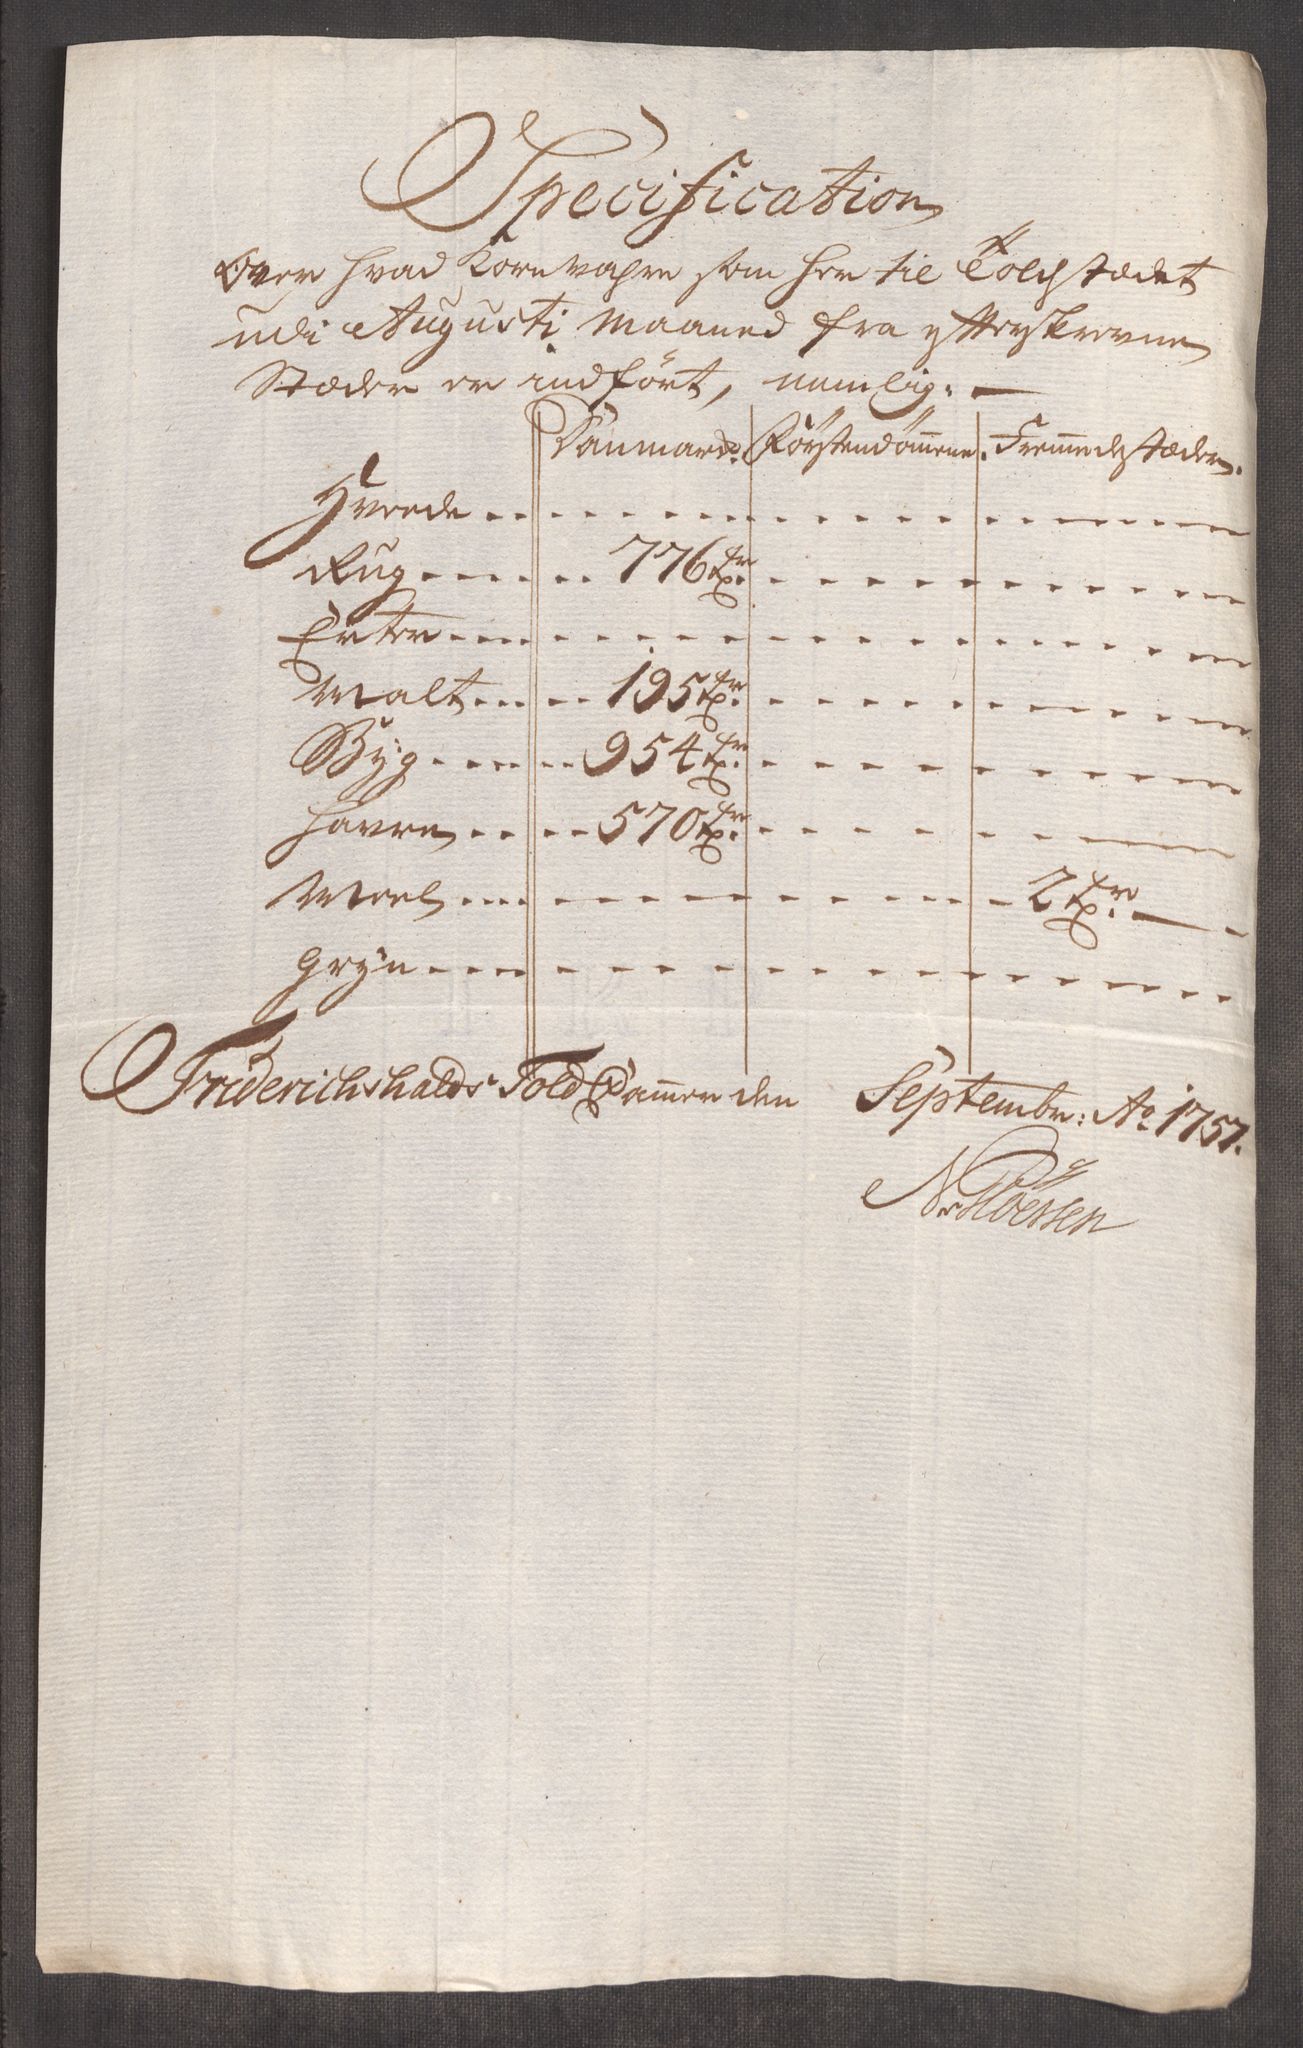 Specification
Over hvad Kornvahre som her til Toldstædet
udi Augusti Maaned fra efterskrevne
Stæder er indført, nemlig.
Danmarck. Förstendömmene. Fremmede Stæder.
Hvede
Rug 776 Tdr.
Erter
Malt 195 Tdr.
Byg 954 Tdr.
Havre 570 Tdr.
Meel 2 Tdr.
Gryn
Friderichshalds Told Cammer den Septembr: Ao. 1757.